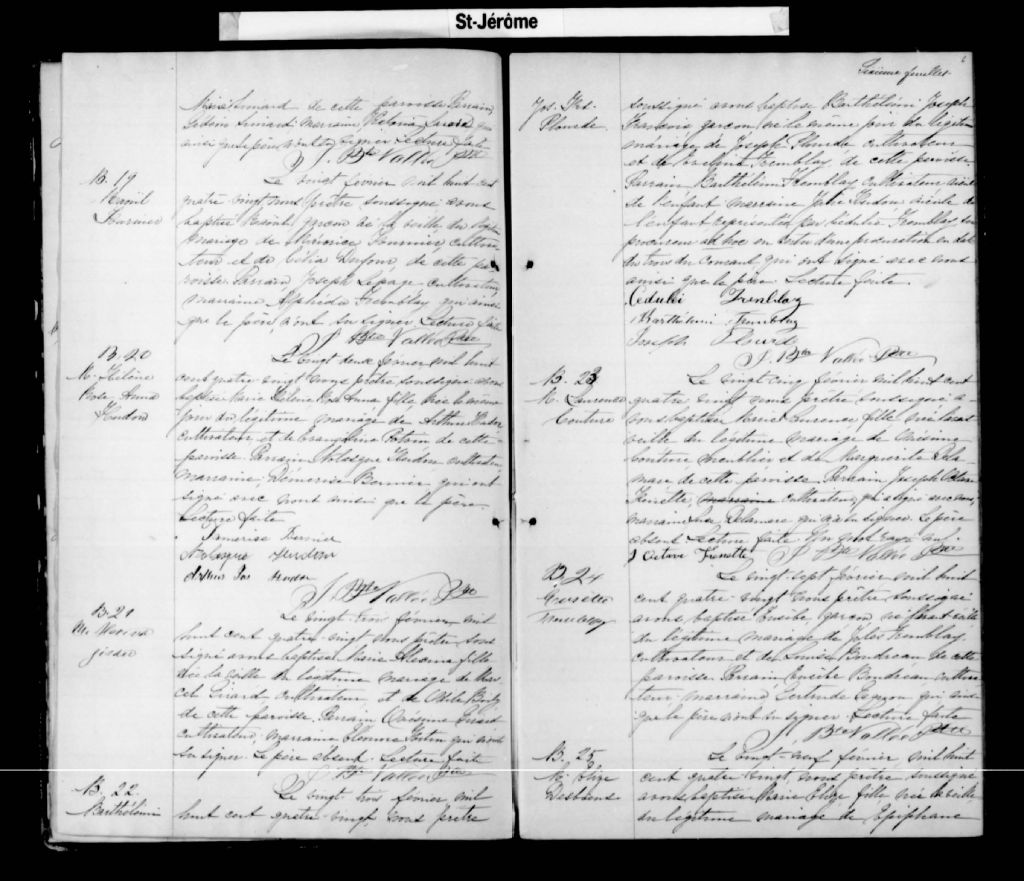 St-Jérôme
de cette paroisse. Parrain,
Simard. Marraine
ainsi que le père n'ont su signer Lecture faite
J. Bte Vallée Ptre
B. 19
Fournier
Le vingt février mil huit cent
quatre vingt nous prêtre soussigné avons
baptisé garçon né la veille du légitime
mariage de Fournier cultiva
teur et de Célia Dufour, de cette pa
roisse. Parrain, Joseph Lepage, cultivateur,
marraine, Alphéda Tremblay qui ainsi
que le père n'ont su signer. Lecture faite
J. Bte Vallée Ptre
B. 20
M. Hélène
Rose Anna
Hudon
Le vingt deux février mil huit
cent quatre vingt nous prêtre soussigné avons
baptisé Marie Hélène Rose Anna fille, née le même
jour du légitime mariage de Arthur Hudon
cultivateur et de Potvin de cette
paroisse. Parrain Hudon cultivateur
marraine Démerise Bernier qui ont
signé avec nous ainsi que le père.
Lecture faite
Démerise Bernier
Hudon
Arthur Hudon
J. Bte Vallée Ptre
B. 21
M.
Le vingt trois février, mil
huit cent quatre vingt nous prêtre, sous
signé avons baptisé Marie fille
née la veille du légitime mariage de
cultivateur et de
de cette paroisse. Parrain
cultivateur marraine Fortin qui n'ont
su signer. Le père absent. Lecture faite
J. Bte Vallée Ptre
B. 22
Barthélémi
Le vingt trois février mil
huit cent quatre-vingt, nous prêtre
Sixième feuillet
Jos. Frs.
Plourde
soussigné avons baptisé Barthélémi Joseph
François garçon né le même jour du légitime
mariage de Joseph Plourde cultivateur
et de Tremblay de cette paroisse.
Parrain Barthélémi Tremblay cultivateur
de l'enfant, marraine Hudon
de l'enfant, représentée par Cédulie Tremblay son
procureur ad hoc en vertu d'une procuration en date
du trois du courant, qui ont signé avec nous
ainsi que le père. Lecture faite.
Cédulie Tremblay
Barthélémi Tremblay
Joseph Plourde
J. Bte Vallée Ptre
B. 23
M. Laurence
Couture
Le vingt cinq février mil huit cent
quatre vingt nous prêtre soussigné a-
vons baptisé Marie Laurence fille née
veille du légitime mariage de
Couture meublier et de Marguerite
de cette paroisse. Parrain Joseph Octave
Frenette, marraine cultivateur, qui a signé avec nous,
marraine Delamare qui n'a su signer. Le père
absent. Lecture faite. Un mot rayé nul.
J Octave Frenette J. Bte Vallée Ptre
B. 24
Eusèbe
Tremblay
Le vingt-sept février mil huit
cent quatre-vingt nous prêtre soussigné
avons baptisé Eusèbe, garçon né
du légitime mariage de Jules Tremblay,
cultivateur et de Louise Boudreau de cette
paroisse. Parrain Eusèbe Boudreau cultiva
teur, marraine Gertrude Gagnon qui ainsi
que le père n'ont su signer. Lecture faite
J. Bte Vallée Ptre
B. 25
M. Elize
Desbiens
Le vingt-neuf février mil huit
cent quatre vingt, nous prêtre soussigné
avons baptisé Marie Elize fille née la veille
du légitime mariage de Epiphane